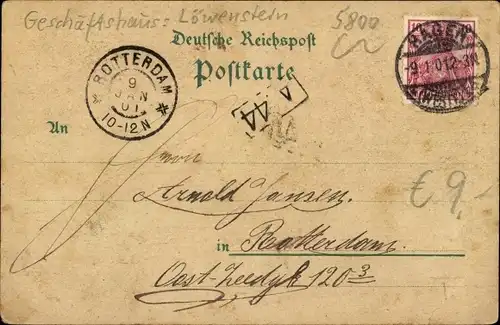 Geschäftshaus: Löwenstern
5800
Deutsche Reichspost
Postkarte
HAGEN
-9.1.01.2-3N.
(WESTF.)
ROTTERDAM
9
JAN
01
10-12N
A
44
An
Herrn
Arnold Jansen.
in Rotterdam.
Oost-Zeedyk 120³
€ 9,-